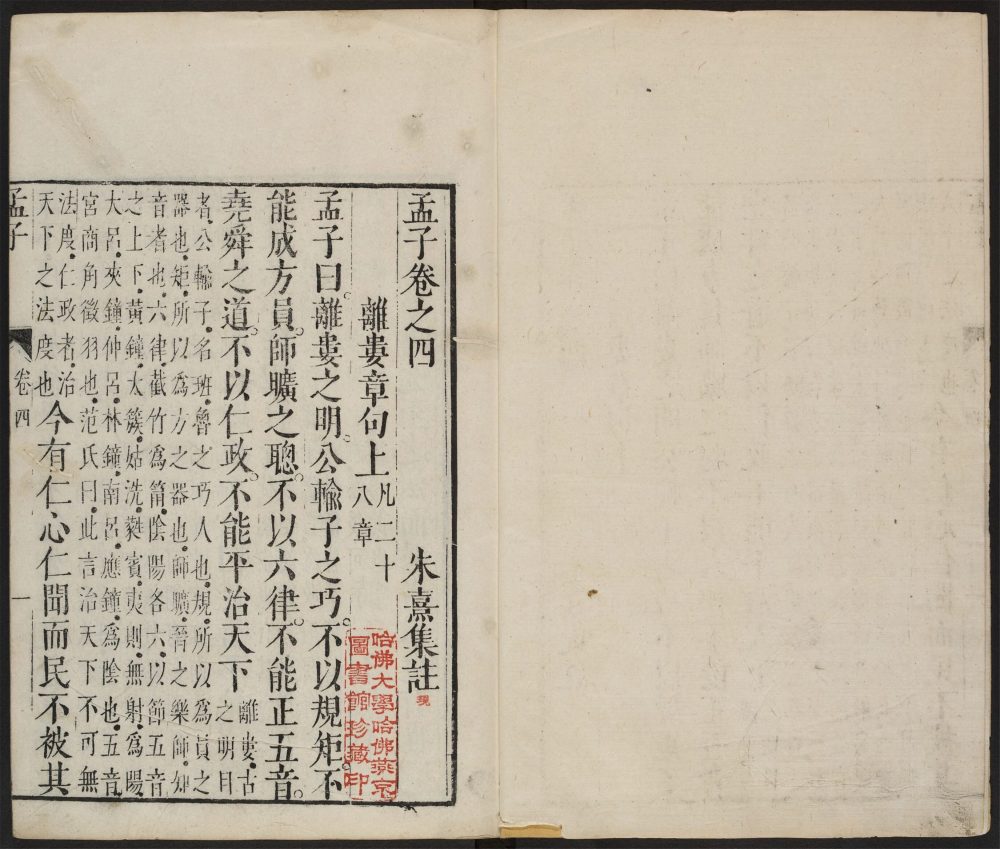 孟子卷之四
朱熹集註
離婁章句上
凡二十
八章
孟子曰離婁之明。公輸子之巧。不以規矩。不
能成方員。師曠之聰。不以六律。不能正五音。
堯舜之道。不以仁政。不能平治天下
離婁。古
之明目
者。公輸子。名班。魯之巧人也。規。所以爲員之
器也。矩。所以爲方之器也。師曠。晉之樂師。知
音者也。六律。截竹爲筩。陰陽各六。以節五音
之上下。黃鐘。太簇。姑洗。蕤賓。夷則。無射。爲陽。
大呂。夾鐘。仲呂。林鐘。南呂。應鐘。爲陰也。五音。
宮商角徵羽也。范氏曰。此言治天下不可無
法度。仁政者。治
天下之法度也
今有仁心仁聞而民不被其
孟子
卷四
一
哈佛大學哈佛燕京
圖書館珍藏印